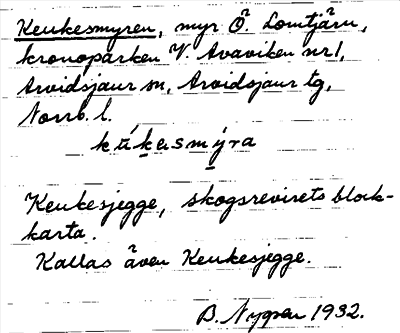 Keukesmyren, myr Ö. Lomtjärn,
kronoparken V. Avaviken nr 1,
Arvidsjaur sn, Arvidsjaur tg,
Norrb. l.
kúkəsmýra
Keukesjegge, skogsrevirets block-
karta.
Kallas även Keukesjegge.
B. Nygren 1932.